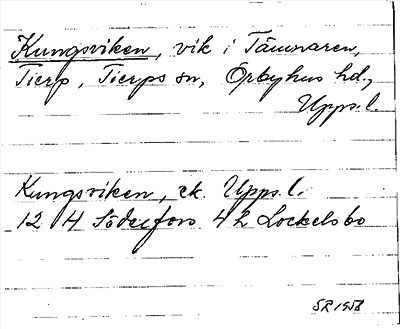 Kungsviken, vik i Tämnaren,
Tierp, Tierps sn, Örbyhus hd.,
Upps. l.
Kungsviken, ek. Upps. l.
12 H Söderfors 4 2 Lockelsbo
SR 1958